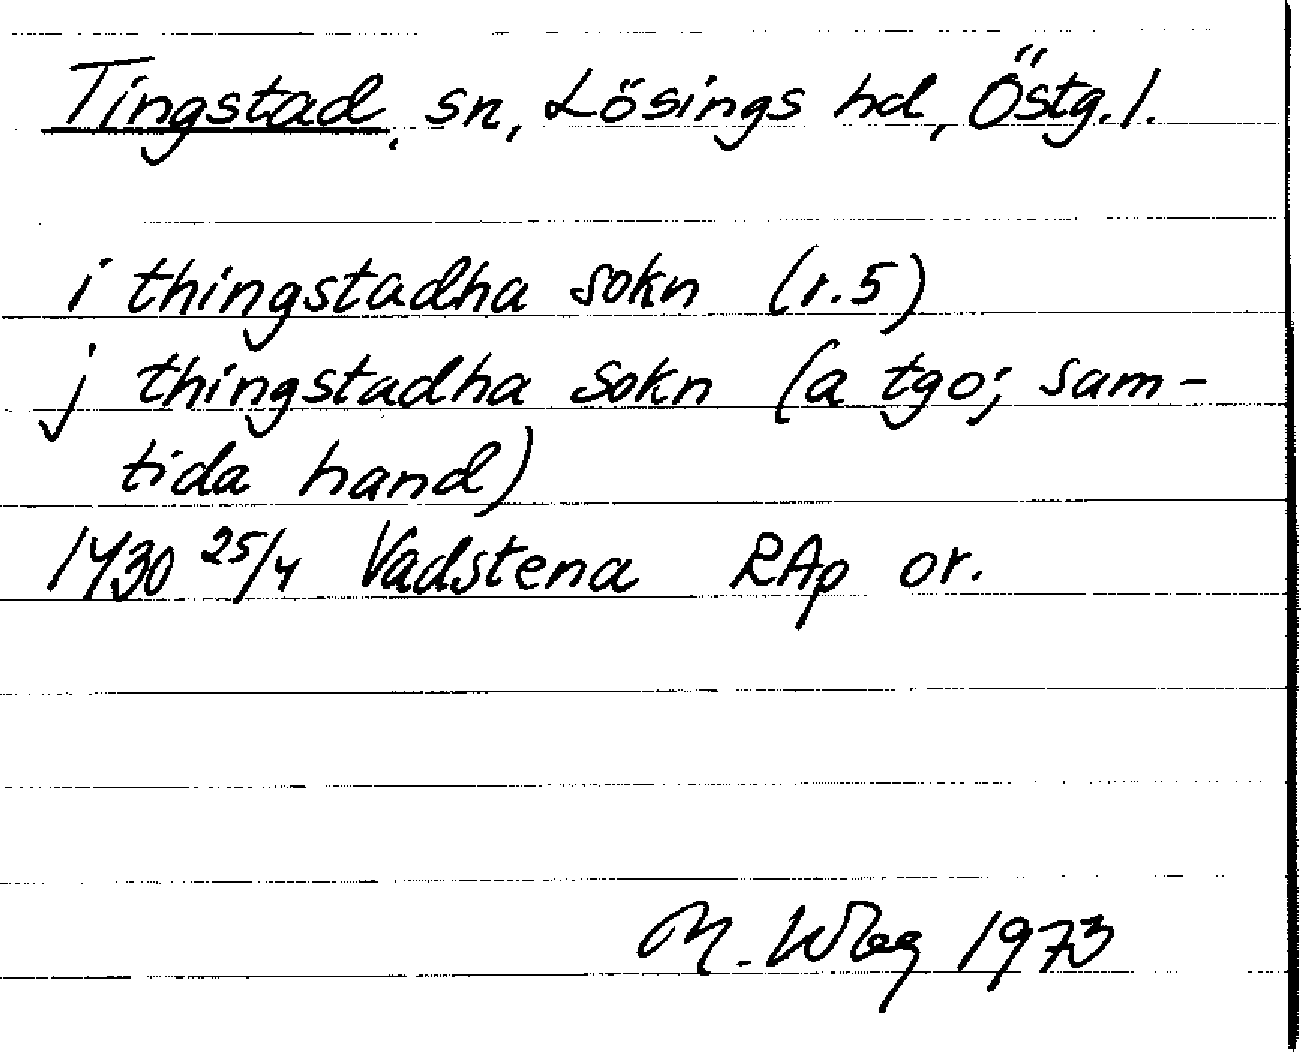 Tingstad, sn, Lösings hd, Östg. l.
i thingstadha sokn (r. 5)
j thingstadha sokn (a tgo; sam-
tida hand)
1430 25/4 Vadstena RAp or.
M. Wbg 1973